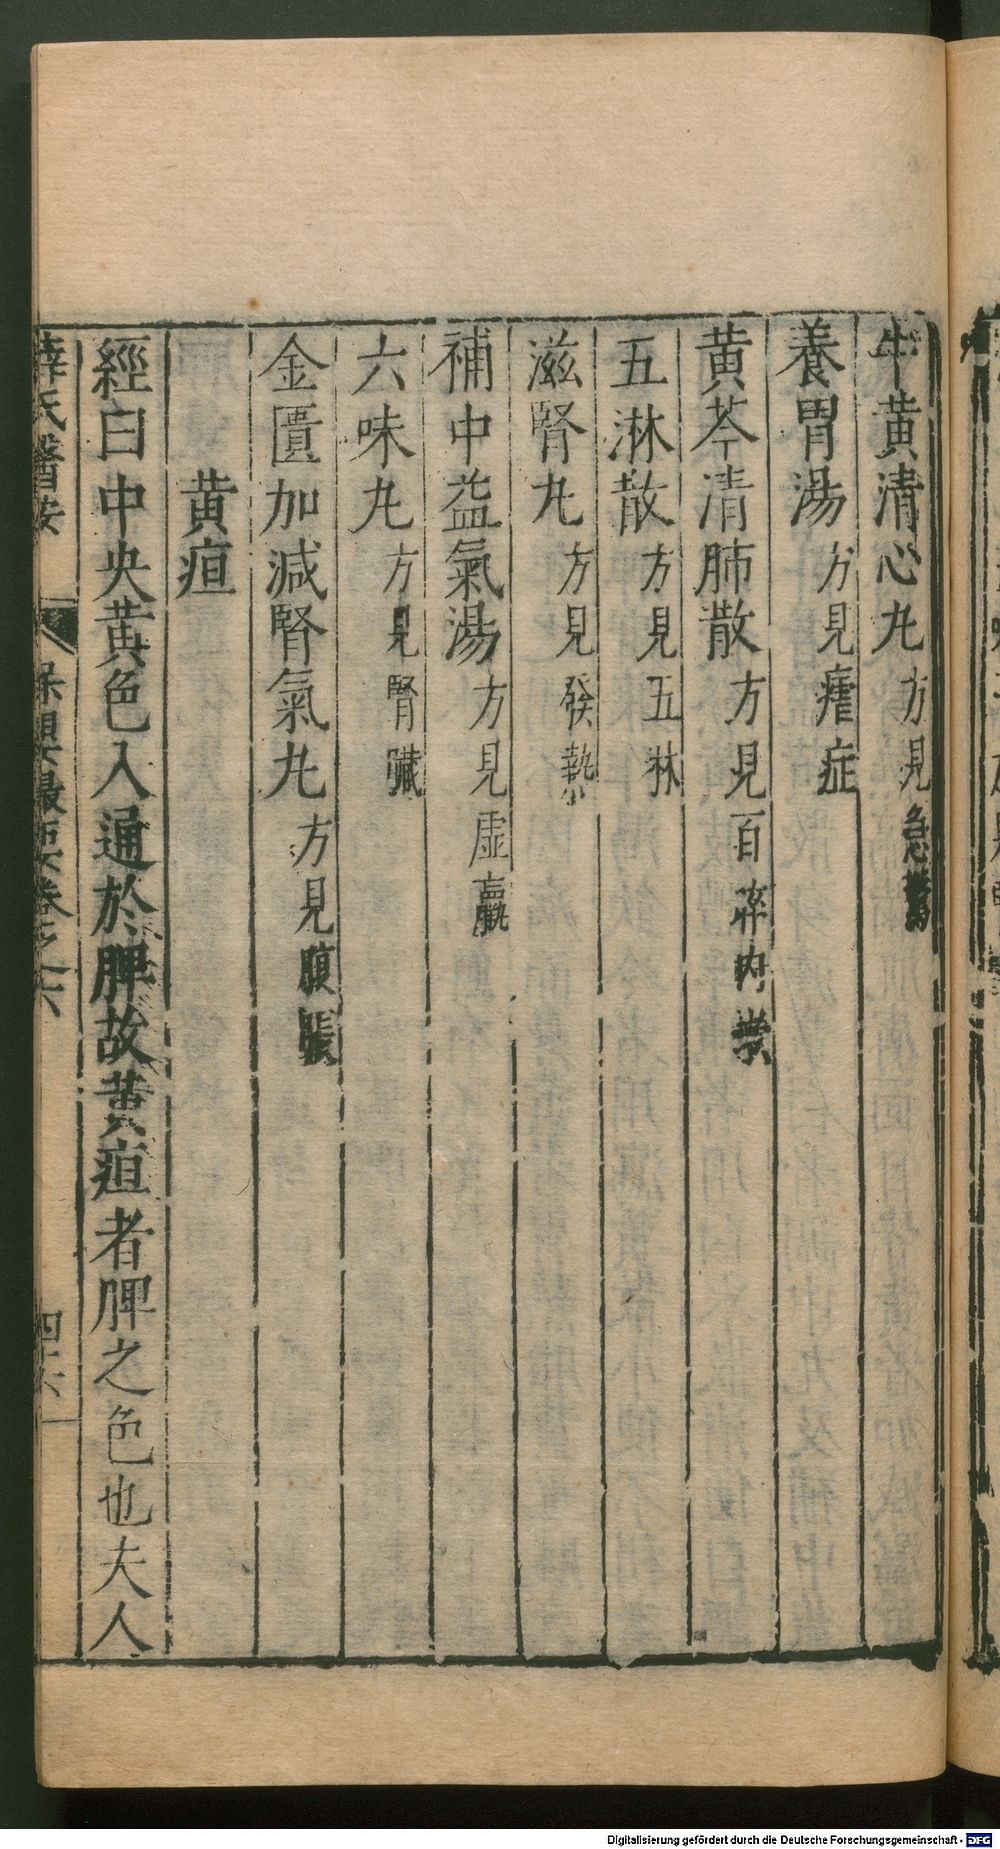 牛黃清心丸方見急驚
養胃湯方見瘧症
黃芩清肺散方見百晬內嗽
五淋散方見五淋
滋腎丸方見發熱
補中益氣湯方見虛羸
六味丸方見腎臟
金匱加減腎氣丸方見腹脹
黃疸
經曰中央黃色入通於脾故黃疸者脾之色也夫人
薛氏醫按 保嬰撮要卷之六 四十六
Digitalisierung gefördert durch die Deutsche Forschungsgemeinschaft - DFG